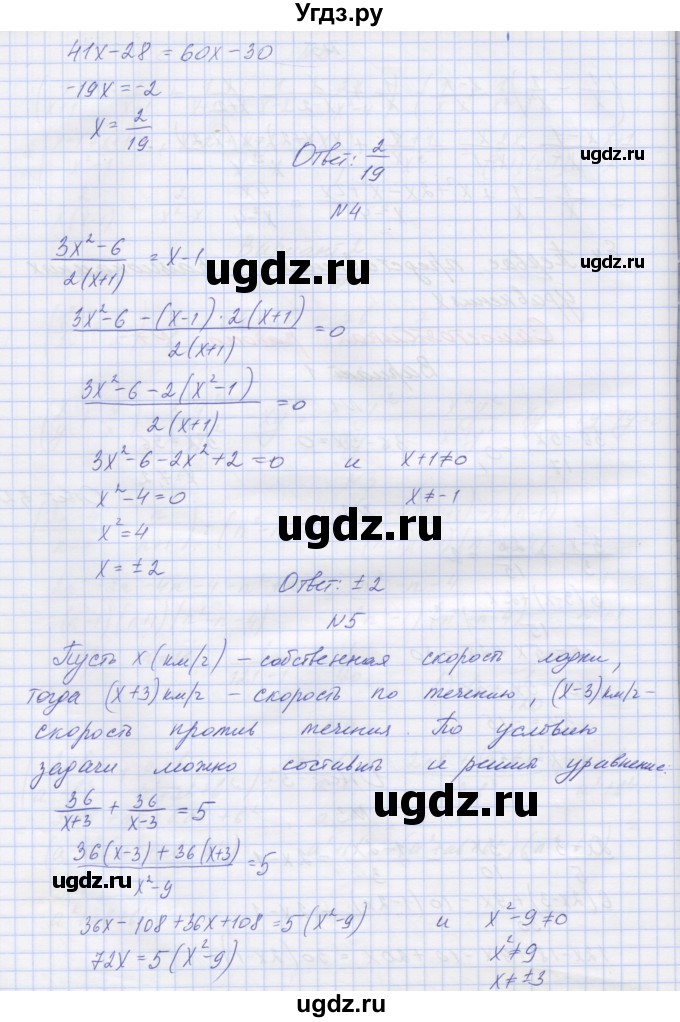 Угдз.ру
41x-28 = 60x-30
-19x = -2
x = 2/19
Ответ: 2/19
ugdz.ru
№4
(3x²-6)/(2(x+1)) = x-1
ugdz.ru
(3x²-6-(x-1)·2(x+1))/(2(x+1)) = 0
(3x²-6-2(x²-1))/(2(x+1)) = 0
ugdz.ru
3x²-6-2x²+2=0 и x+1≠0
x²-4=0 x≠-1
ugdz.ru
x²=4
x=±2
Ответ: ±2
№5
Пусть x (км/г) – собственная скорость лодки,
тогда (x+3) км/г – скорость по течению, (x-3) км/г –
скорость против течения. По условию
задачи можно составить и решить уравнение:
36/(x+3) + 36/(x-3) = 5
ugdz.ru
(36(x-3)+36(x+3))/(x²-9) = 5
ugdz.ru
ugdz.ru
36x-108+36x+108=5(x²-9) и x²-9≠0
72x=5(x²-9) x²≠9
x≠±3
ugdz.ru